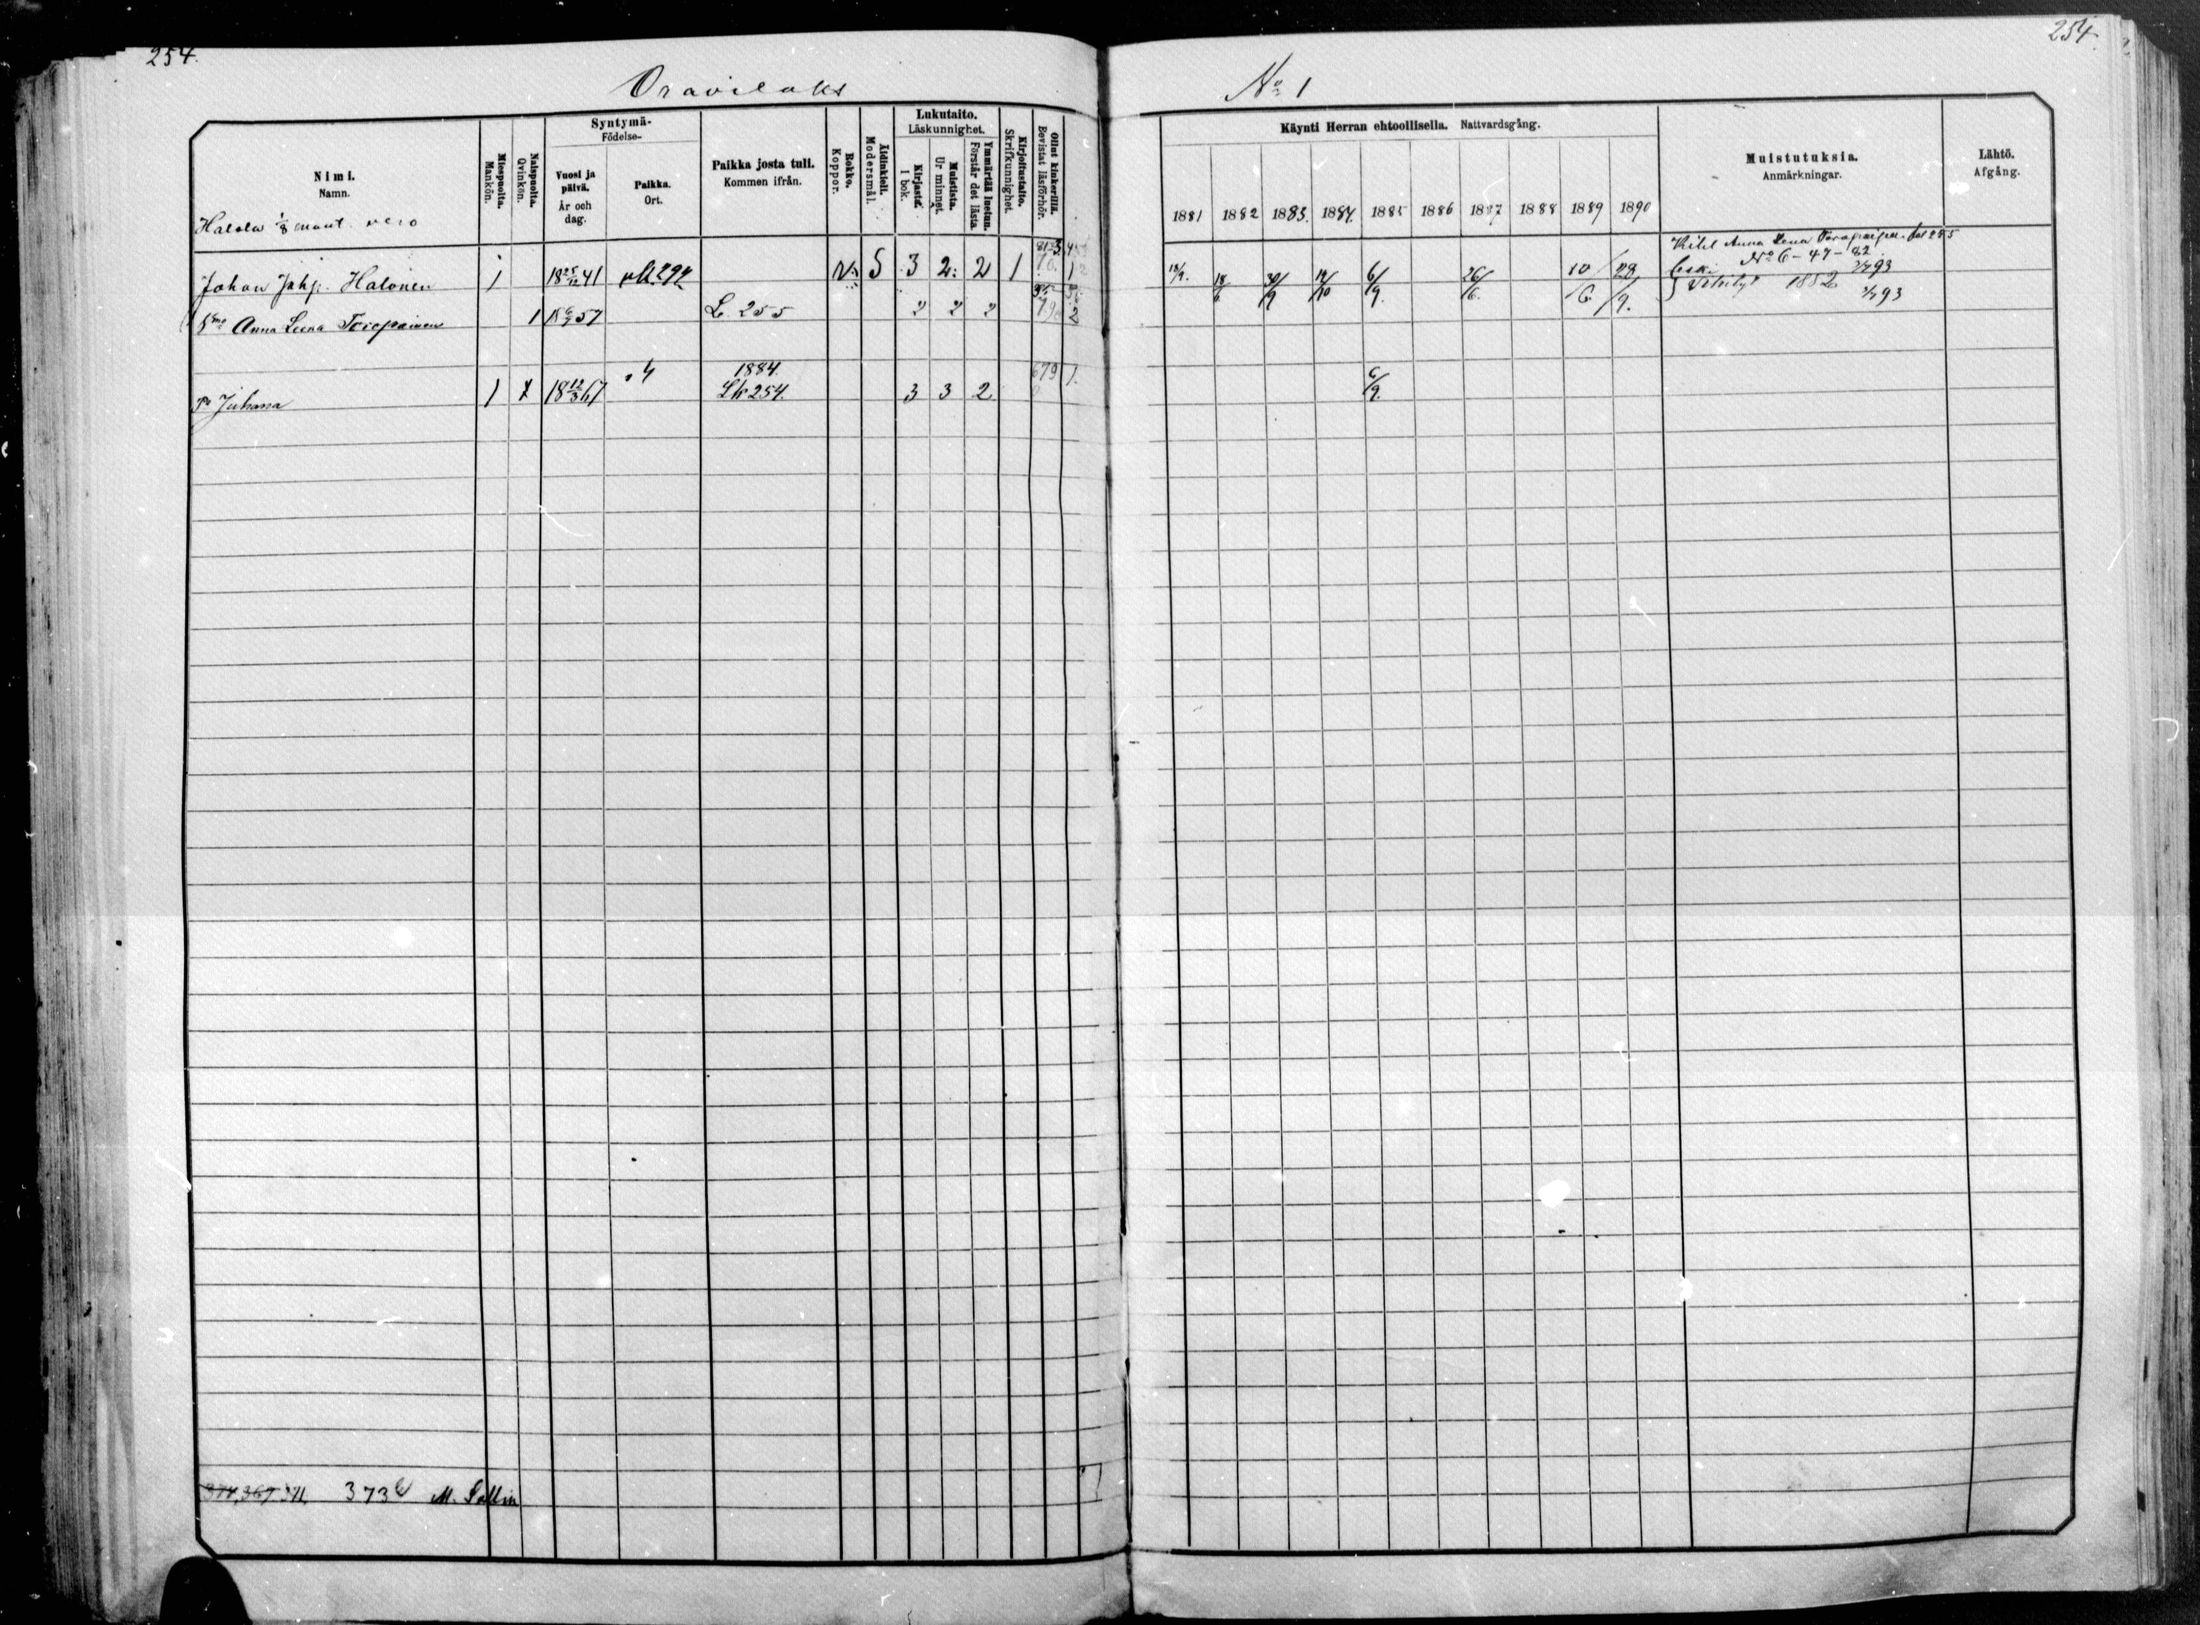 254.
254.
Oravilaks
No 1
Nimi.
Namn.
Miespuolta.
Mankön.
Naispuolta.
Qvinkön.
Syntymä-
Födelse-
Vuosi ja
päivä.
År och
dag.
Paikka.
Ort.
Paikka josta tuli.
Kommen ifrån.
Rokko.
Koppor.
Äidinkieli.
Modersmål.
Lukutaito.
Läskunnighet.
Kirjasta.
I bok.
Muistista.
Ur minnet.
Ymmärtää luetun.
Förstår det lästa.
Kirjoitustaito.
Skrifkunnighet.
Ollut kinkerillä.
Bevistat läsförhör.
Käynti Herran ehtoollisella. Nattvardsgång.
1881 1882 1883. 1884. 1885 1886 1887 1888 1889 1890
Muistutuksia.
Anmärkningar.
Lähtö.
Afgång.
Halola 1/8 mant. vero
Kihl Anna Lena 255
No 6-47-82
Johan Johp. Halonen 1 18 25/12 41 S 3 2 2 1 18/9. 18/6 30/9 19/10 6/9. 26/6. 10/6 28/9.
Leski 2/4 93
Vihityt 1882 2/4 93
Vmo Anna Leena Toiopainen 1 18 57 L. 255 2 2 2 2
Po Juhana 1 18 12/3 67 1884 Lk 254. 3 3 2 679 1. 6/9.
373 M. Sallin